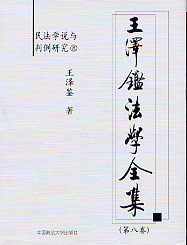 民法学说与
判例研究⑧
王泽鉴 著
王澤鑑法學全集
(第八卷)
中国政法大学出版社